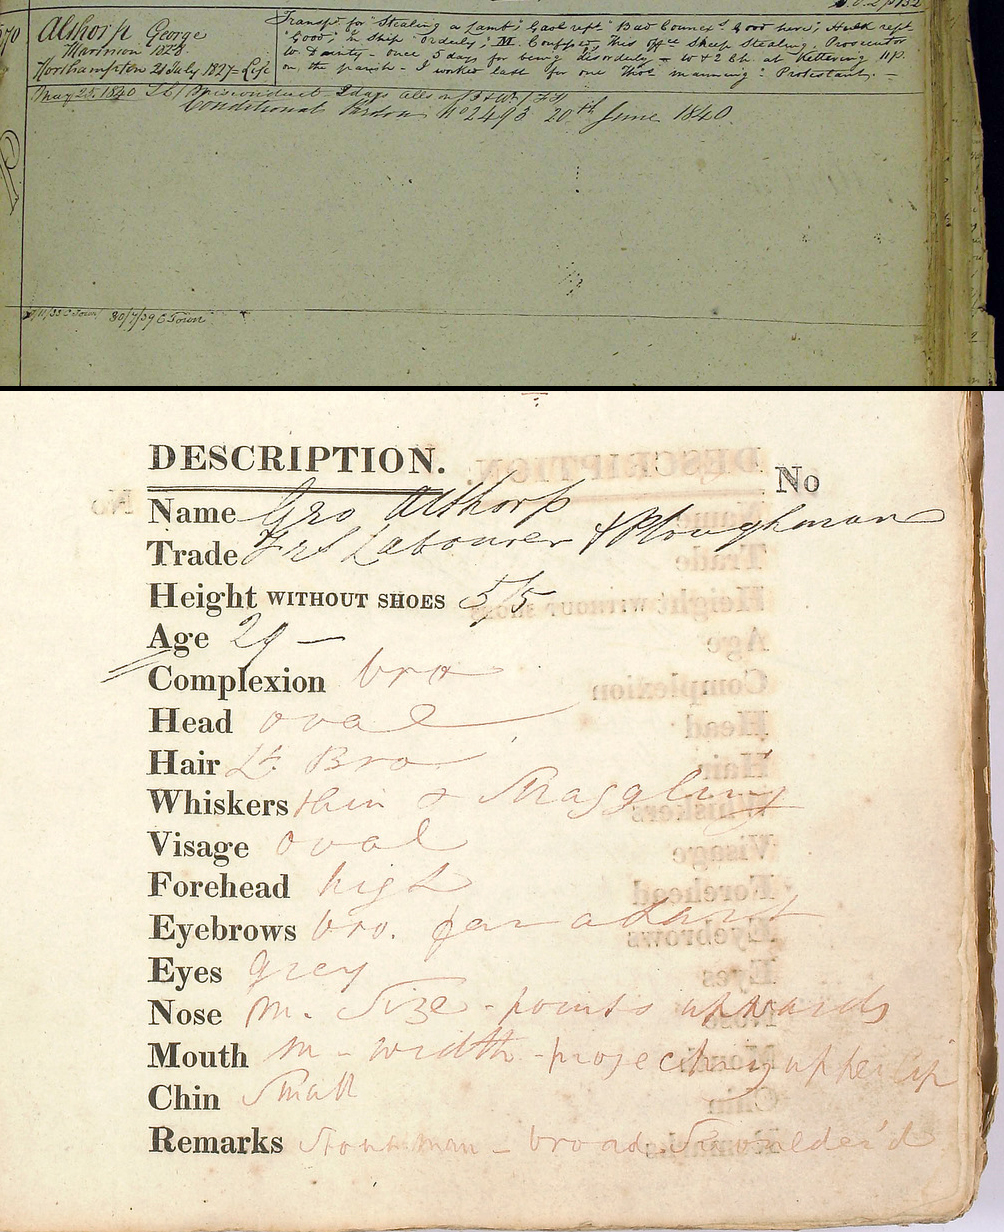 270
Althorp George
Marmion 1828
Northampton 21 July 1827 = Life
Transpd. for "Stealing a Lamb"; Gaol rept. "Bad Connexs. Good here"; Hulk rept.
"Good"; In Ship "Orderly"; M. Confesses This Offce. Sheep Stealing. Prosecutor
W. Dainty - once 5 days for being disorderly = W + 2 Ch. at Kettering N.p.
on the parish - I worked last for one Thos. Manning: Protestant. -
May 25. 1840 misconduct 3 days
Conditional Pardon No 2493 20th June 1840
30/7/39 C Town
DESCRIPTION.
No
Name Geo Althorp
Trade Frs Labourer & Ploughman
Height WITHOUT SHOES 5/5
Age 29 -
Complexion bro
Head oval
Hair Lt. Bro
Whiskers thin & Straggling
Visage oval
Forehead high
Eyebrows bro. far adist
Eyes grey
Nose M. Size - points upwards
Mouth M - width - projecting upper lip
Chin Small
Remarks Stout man - broad Shoulder'd